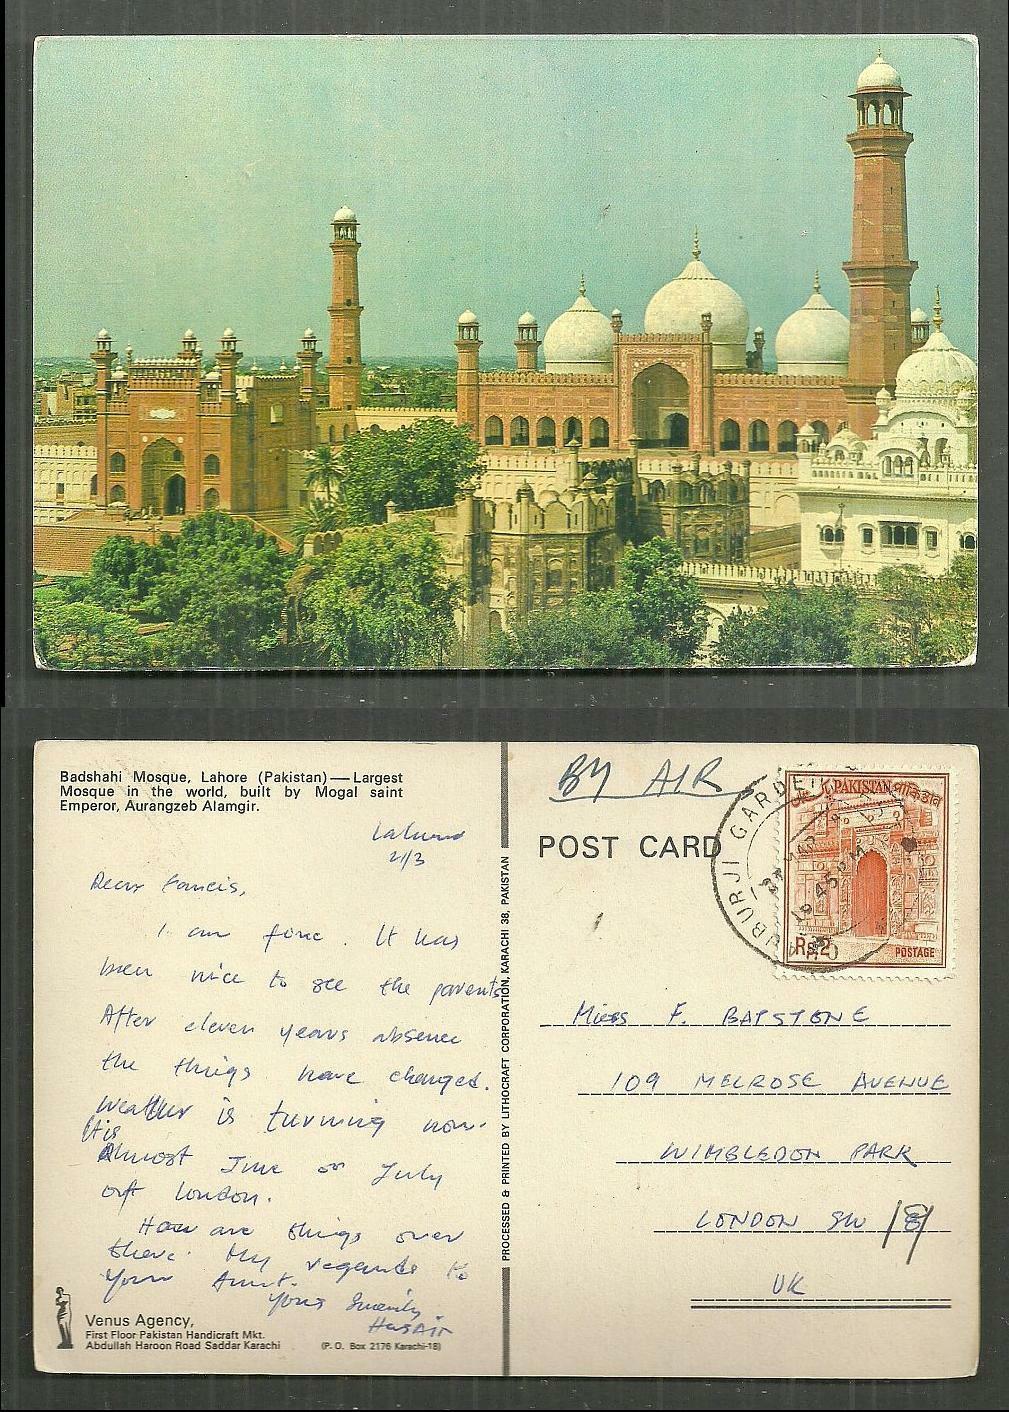 Badshahi Mosque, Lahore (Pakistan)—Largest
Mosque in the world, built by Mogal saint
Emperor, Aurangzeb Alamgir.
Lahore
21/3
Dear Francis,
I am fine. It has
been nice to see the parents
After eleven years absence
the things have changed.
Weather is turning now.
It is
Almost June or July
off London.
How are things over
there. My regards to
Your Aunt.
Yours Sincerely
Venus Agency,
First Floor Pakistan Handicraft Mkt.
Abdullah Haroon Road Saddar Karachi
(P. O. Box 2176 Karachi-18)
PROCESSED & PRINTED BY LITHOCRAFT CORPORATION, KARACHI 38, PAKISTAN
BY AIR
POST CARD
PAKISTAN পাকিস্তান
Rs2
POSTAGE
UBURJI GARDE
MAR
45PM
Miss F. BAPSTONE
109 MELROSE AVENUE
WIMBLEDON PARK
LONDON SW 18
UK